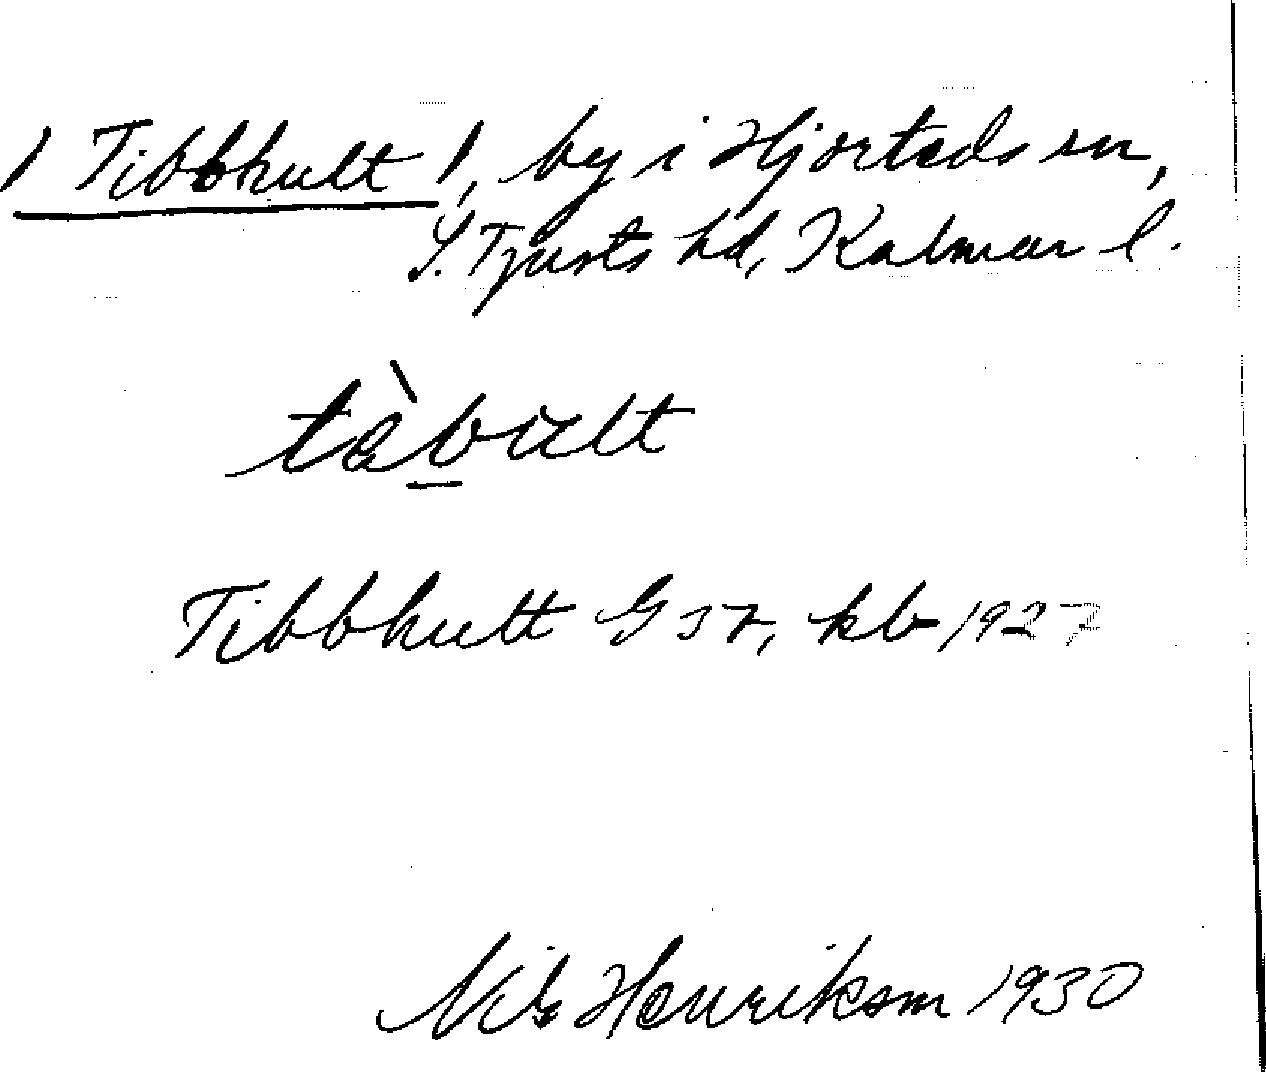 / Tibbhult /, by i Hjorteds sn,
S. Tjusts hd, Kalmar l.
tèbult
Tibbhult G 37, kb 1927
Nils Henrikson 1930